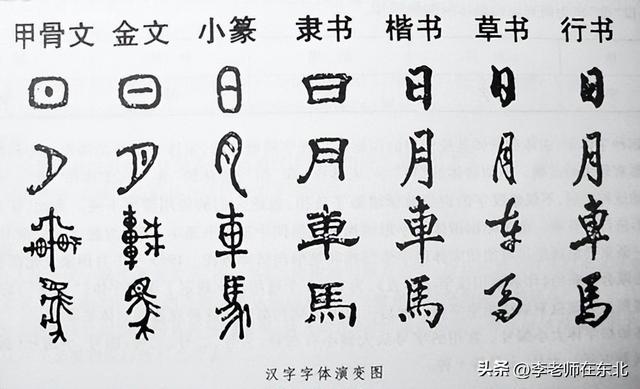 甲骨文 金文 小篆 隶书 楷书 草书 行书
日 日 日 日 日 日 日
月 月 月 月 月 月 月
車 車 車 車 車 車 車
馬 馬 馬 馬 馬 馬 馬
汉字字体演变图
头条 @李老师在东北